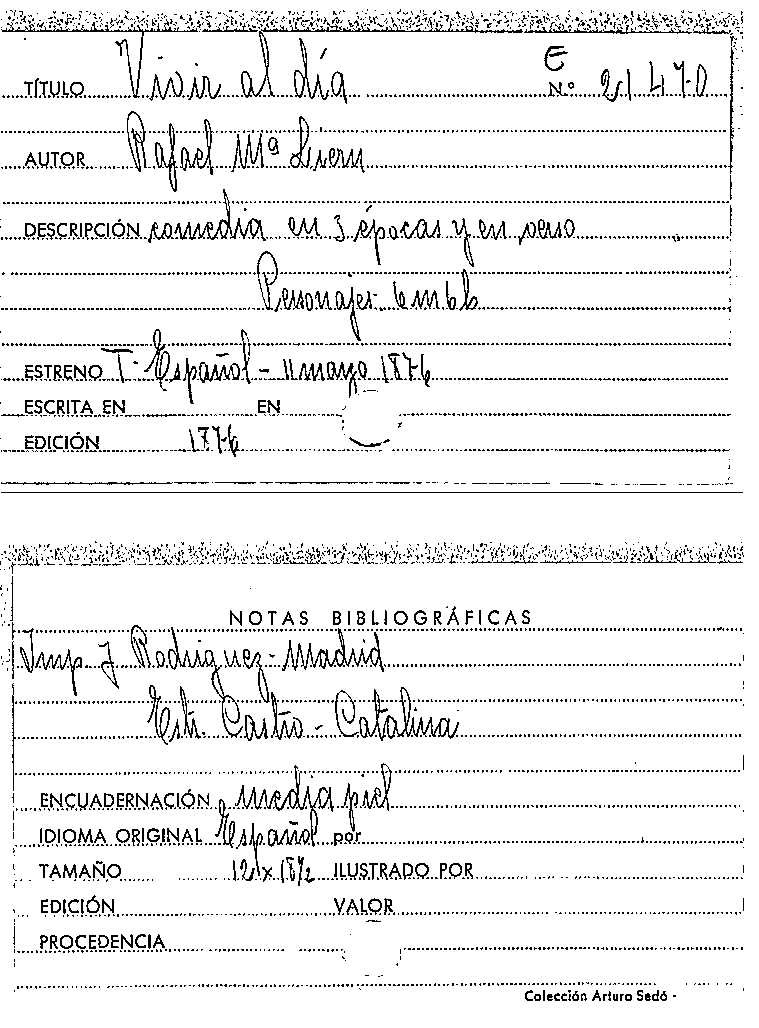 E
TÍTULO Vivir al día Nº 21470
AUTOR Rafael Mª Liern
DESCRIPCIÓN comedia en 3 épocas y en verso
Personajes- 6m6h
ESTRENO T. Español - 11 mayo 1876
ESCRITA EN EN
EDICIÓN 1876
NOTAS BIBLIOGRÁFICAS
Imp. J Rodriguez - Madrid
Estr. Castro - Catalina
ENCUADERNACIÓN media piel
IDIOMA ORIGINAL Español por
TAMAÑO ILUSTRADO POR
EDICIÓN VALOR
PROCEDENCIA
Colección Arturo Sedó -